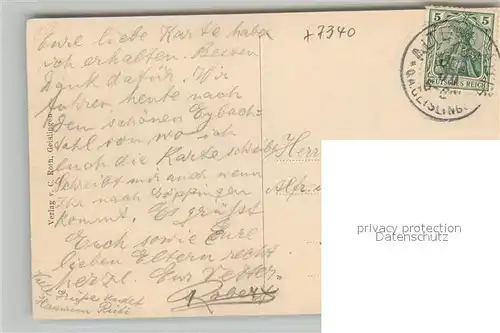 Eure liebe Karte habe
ich erhalten. Besten
Dank dafür. Wir
fuhren heute nach
dem schönen Eybach-
thal von wo ich
euch die Karte schreibe
Schreibt mir auch wenn
Ihr nach Göppingen
kommt. Es grüßt
Euch sowie Eure
lieben Eltern recht
herzl. Eur Vetter
Robert
Grüße sendet
+7340
5 5
DEUTSCHES REICH
O.A.GEISLINGEN
Herr
Alfr.
Verlag v. C. Roth, Geislingen
privacy protection
Datenschutz